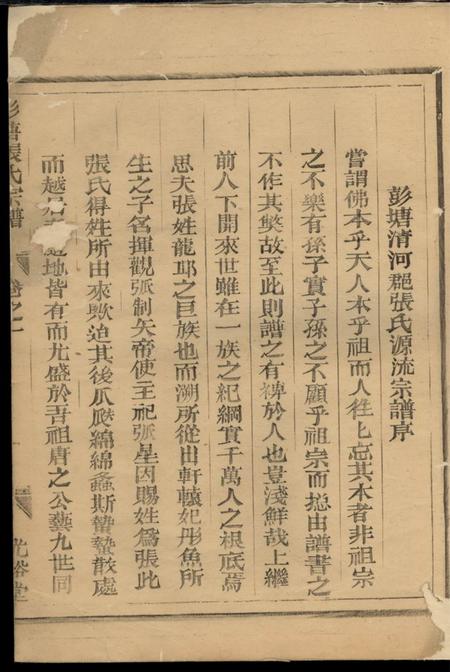 彭塘清河郡張氏源流宗譜序
嘗謂佛本乎天人本乎祖而人往上忘其本者非祖宗
之不樂有孫子實子孫之不顧乎祖宗而揔由譜書之
不作其獘故至此則譜之有裨於人也豈淺鮮哉上繼
前人下開來世雖在一族之紀綱實千萬人之根底焉
思夫張姓龍邱之巨族也而溯所從由軒轅妃彤魚所
生之子名揮觀弧制矢帝使主祀弧星因賜姓爲張此
張氏得姓所由來歟迨其後瓜瓞綿綿螽斯蟄蟄散處
而越地皆有而尤盛於吾祖唐之公藝九世同
彭塘張氏宗譜
卷之一
光裕堂